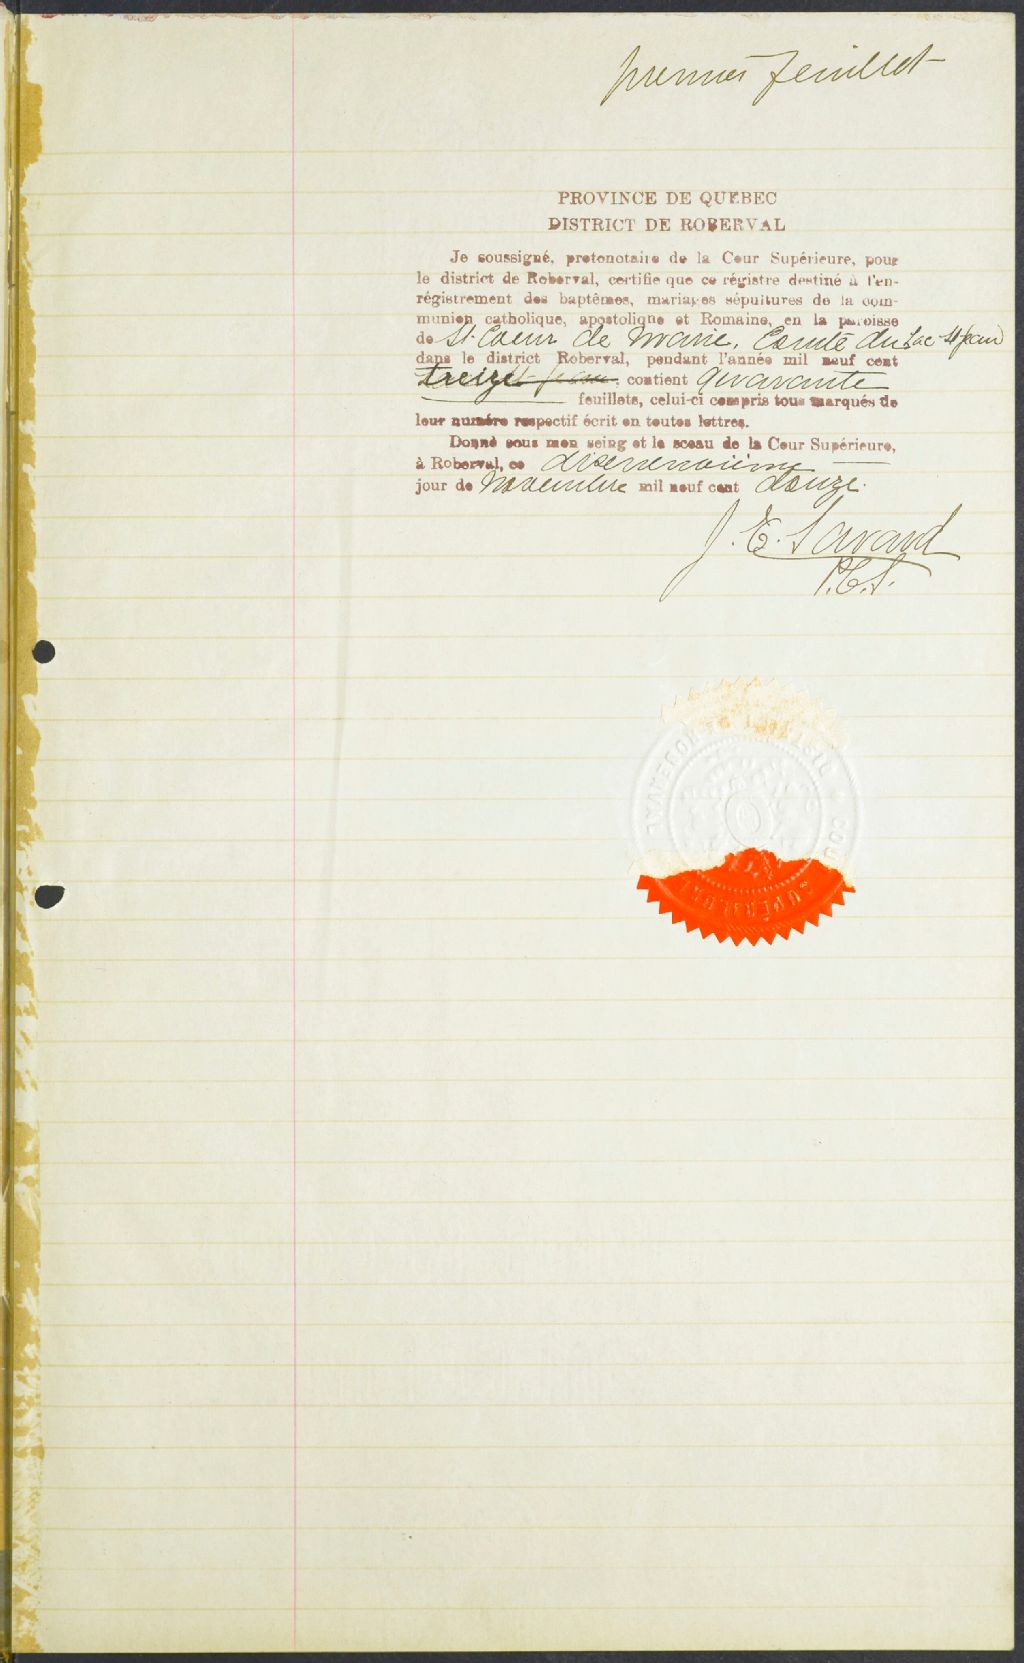 premier feuillet
PROVINCE DE QUEBEC
DISTRICT DE ROBERVAL
Je soussigné, protonotaire de la Cour Supérieure, pour
le district de Roberval, certifie que ce régistre destiné à l'en-
régistrement des baptêmes, mariages sépultures de la com-
munion catholique, apostolique et Romaine, en la paroisse
de St. Coeur de Marie, Comté du Lac-St-Jean
dans le district Roberval, pendant l'année mil neuf cent
treize, contient quarante
feuillets, celui-ci compris tous marqués de
leur numéro respectif écrit en toutes lettres.
Donné sous mon seing et le sceau de la Cour Supérieure,
à Roberval, ce dixneuvième
jour de Novembre mil neuf cent douze.
J. E. Savard
P.C.S.
SUPÉRIEURE